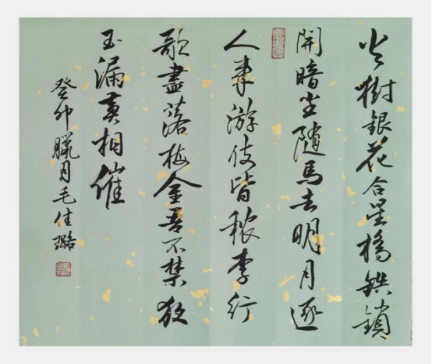 火樹銀花合星橋鉄鎖
開暗塵隨馬去明月逐
人來游伎皆穠李行
歌盡落梅金吾不禁夜
玉漏莫相催
癸卯臘月毛佳璐